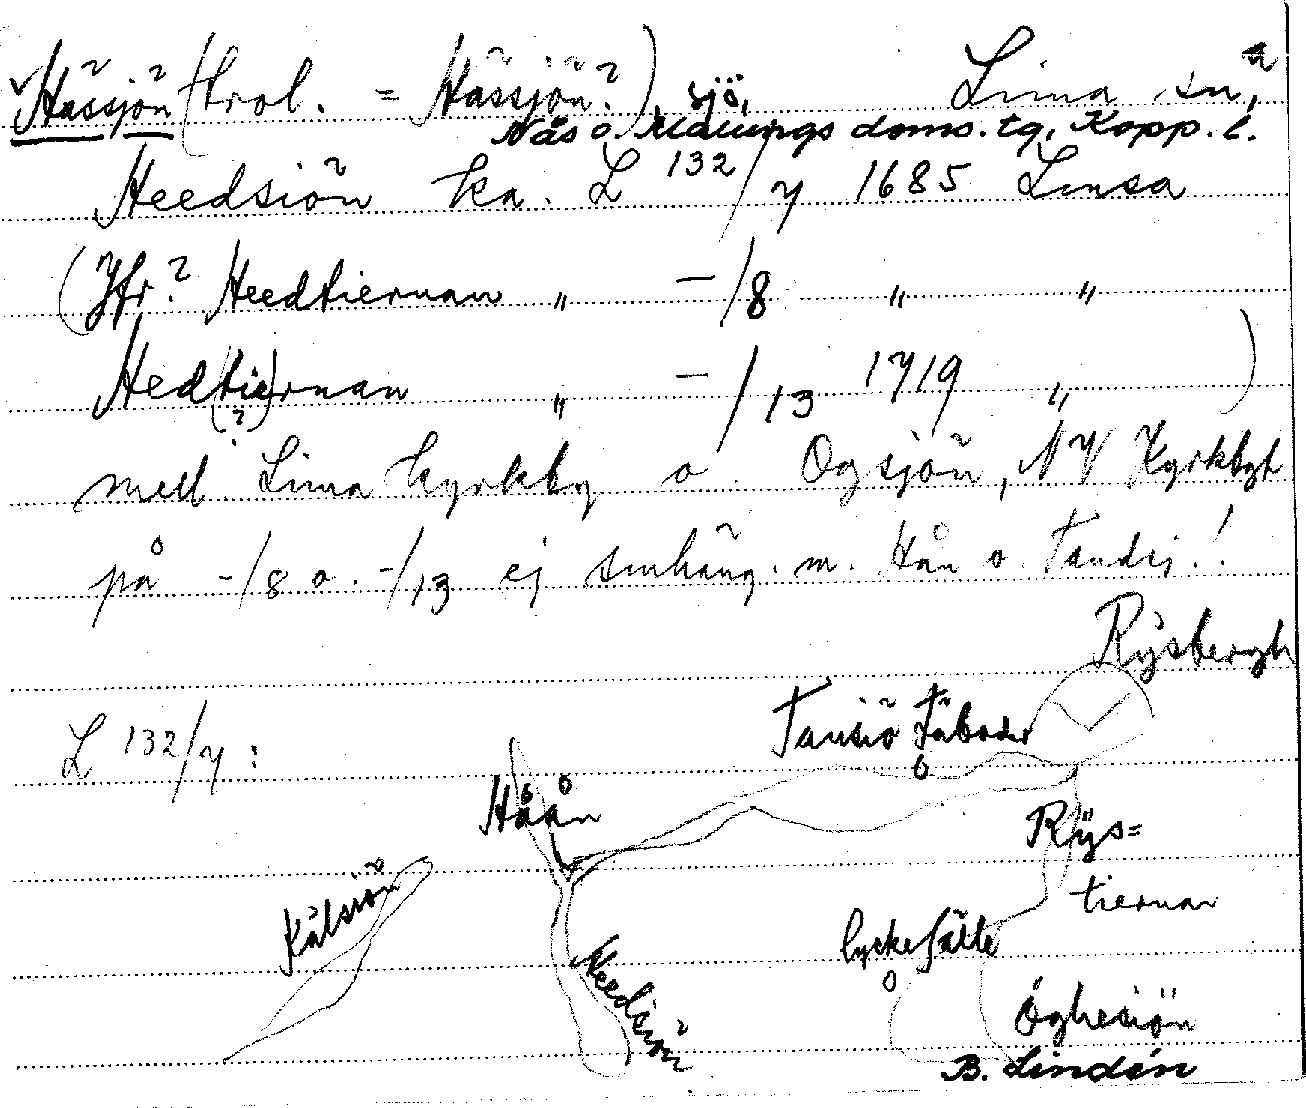 Hässjön (trol. = Hässjön?), sjö, Lima sn,
Nås o. Malungs doms. tg, Kopp. l.
Heedsiön ka. L 132/7 1685 Limsa
(Jfr? Heedtiernan „ —/8 „ „
Hedtiernan „ —/13 1719 „ )
(?)
med Lima kyrkby o Ogsjön, NV Kyrkbyh
på -/8 o. -/13 ej smhäng. m. Hån o. Tandsj.!
Rÿsbergh
L 132/7:
Tansiö Fäboder
Håån
Rÿs=
tiernar
Kälsiön
lyckefälte
Heedsiön
Óghesiön
B. Lindén